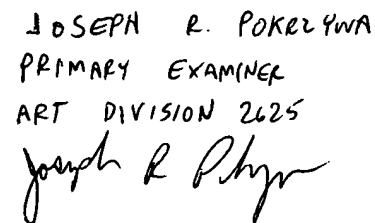 JOSEPH R. POKRZYWA
PRIMARY EXAMINER
ART DIVISION 2625
Joseph R P